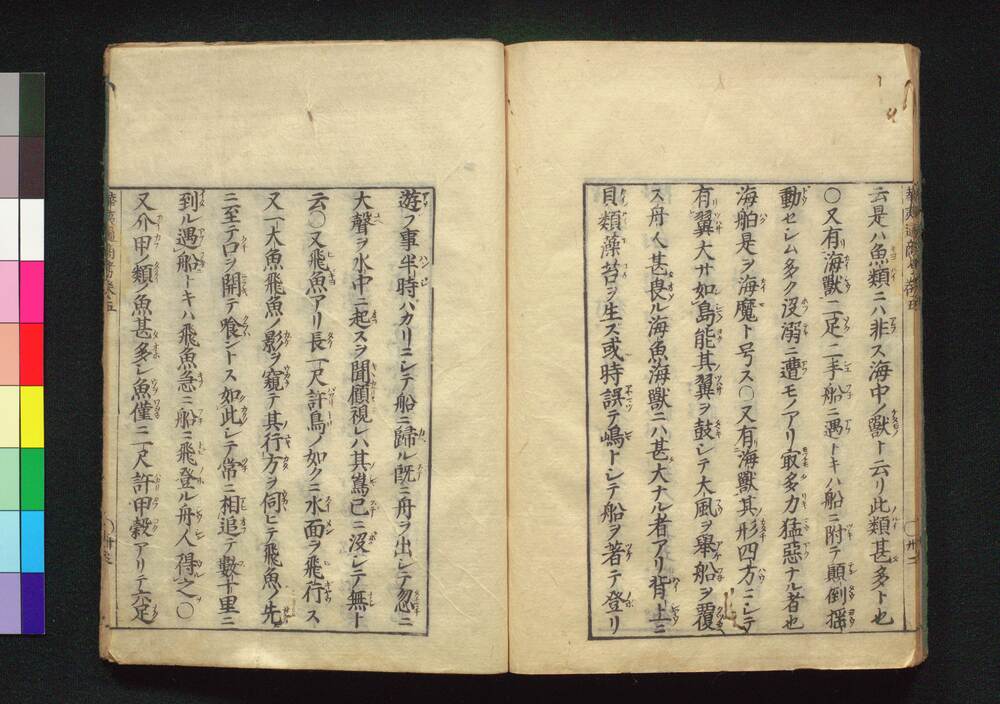 云是ハ魚類ニハ非ス海中ノ獸ト云リ此類甚多ト也
〇又有海獸二足二手船ニ遇トキハ船ニ附テ顚倒揺
動セシム多ク沒溺ニ遭モノアリ㝡多力猛惡ナル者也
海舶是ヲ海魔ト号ス〇又有海獸其形四方ニシテ
有翼大サ如島能其翼ヲ鼓シテ大風ヲ舉船ヲ覆
ス舟人甚畏ル海魚海獸ニハ甚大ナル者アリ背上ニ
貝類藻苔ヲ生ス或時誤テ嶋トシテ船ヲ著テ登リ
遊フ事半時ハカリニシテ船ニ歸ル既ニ舟ヲ出シテ忽ニ
大聲ヲ水中ニ起スヲ聞顧視レハ其嶌已ニ沒シテ無ト
云〇又飛魚アリ長一尺許鳥ノ如クニ水面ヲ飛行ス
又一大魚飛魚ノ影ヲ窺テ其行方ヲ伺ヒテ飛魚ノ先
ニ至テ口ヲ開テ喰ントス如此シテ常ニ相追テ數十里ニ
到ル遇船トキハ飛魚急ニ船ニ飛登ル舟人得之〇
又介甲ノ類ノ魚甚多シ魚僅ニ一尺許甲殼アリテ六足